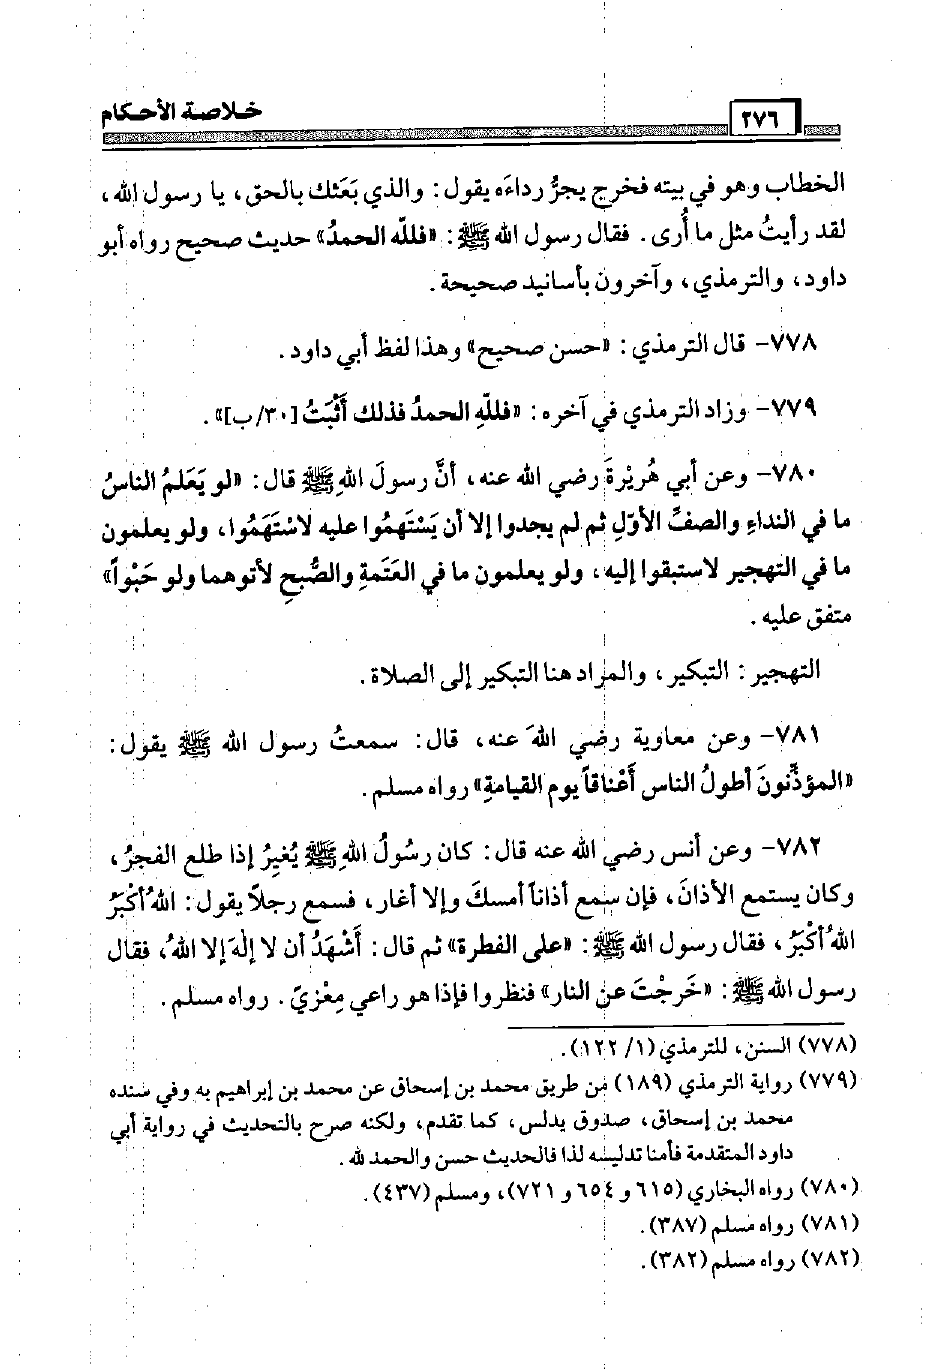 ٢٧٦ خلاصة الأحكام
الخطاب وهو في بيته فخرج يجرُّ رداءَه يقول: والذي بَعَثك بالحق، يا رسول الله،
لقد رأيتُ مثل ما أُرى. فقال رسول الله ﷺ: «فللّه الحمدُ» حديث صحيح رواه أبو
داود، والترمذي، وآخرون بأسانيد صحيحة.
٧٧٨- قال الترمذي: «حسن صحيح» وهذا لفظ أبي داود.
٧٧٩- وزاد الترمذي في آخره: «فللّهِ الحمدُ فذلك أَثْبَتُ [٣٠/ب]».
٧٨٠- وعن أبي هُريْرةَ رضي الله عنه، أنَّ رسولَ اللهِ ﷺ قال: «لو يَعَلمُ الناسُ
ما في النداءِ والصفِّ الأوّلِ ثم لم يجدوا إلا أن يَسْتَهمُوا عليه لاسْتَهَمُوا، ولو يعلمون
ما في التهجير لاستبقوا إليه، ولو يعلمون ما في العَتَمةِ والصُّبحِ لأتوهما ولو حَبْواً»
متفق عليه.
التهجير: التبكير، والمراد هنا التبكير إلى الصلاة.
٧٨١- وعن معاوية رضي اللهَ عنه، قال: سمعتُ رسول الله ﷺ يقول:
«المؤذِّنونَ أطولُ الناس أَعْناقاً يوم القيامةِ» رواه مسلم.
٧٨٢- وعن أنس رضي الله عنه قال: كان رسُولُ اللهِ ﷺ يُغيرُ إذا طلع الفجرُ،
وكان يستمع الأذانَ، فإن سمع أذاناً أمسكَ وإلا أغار، فسمع رجلاً يقول: اللهُ أكْبَرُ
اللهُ أكْبَرُ، فقال رسول الله ﷺ: «على الفطرة» ثم قال: أَشْهَدُ أن لا إلٰهَ إلا اللهُ، فقال
رسول الله ﷺ: «خَرجْتَ عن النار» فنظروا فإذا هو راعي مِعْزيً. رواه مسلم.
(٧٧٨) السنن، للترمذي (١/ ١٢٢).
(٧٧٩) رواية الترمذي (١٨٩) من طريق محمد بن إسحاق عن محمد بن إبراهيم به وفي سنده
محمد بن إسحاق، صدوق يدلس، كما تقدم، ولكنه صرح بالتحديث في رواية أبي
داود المتقدمة فأمنا تدليسه لذا فالحديث حسن والحمد لله.
(٧٨٠) رواه البخاري (٦١٥ و ٦٥٤ و ٧٢١)، ومسلم (٤٣٧).
(٧٨١) رواه مسلم (٣٨٧).
(٧٨٢) رواه مسلم (٣٨٢).